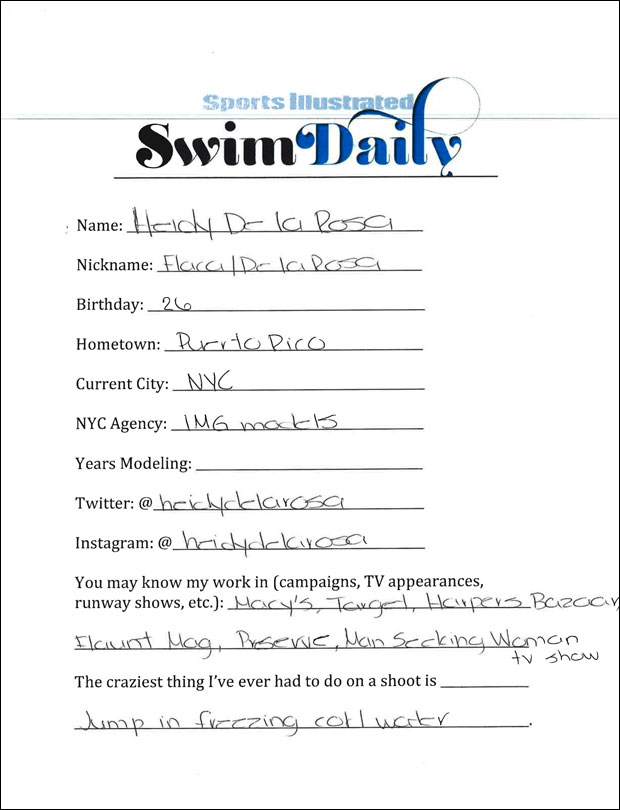 Sports Illustrated
Swim Daily
Name: Heidy De la Rosa
Nickname: Flaca/De la Rosa
Birthday: 26
Hometown: Puerto Rico
Current City: NYC
NYC Agency: IMG models
Years Modeling:
Twitter: @heidydelarosa
Instagram: @heidydelarosa
You may know my work in (campaigns, TV appearances,
runway shows, etc.): Macy's, Target, Harpers Bazaar,
Flaunt Mag, Preserve, Man Seeking Woman
tv show
The craziest thing I've ever had to do on a shoot is
Jump in freezing cold water.